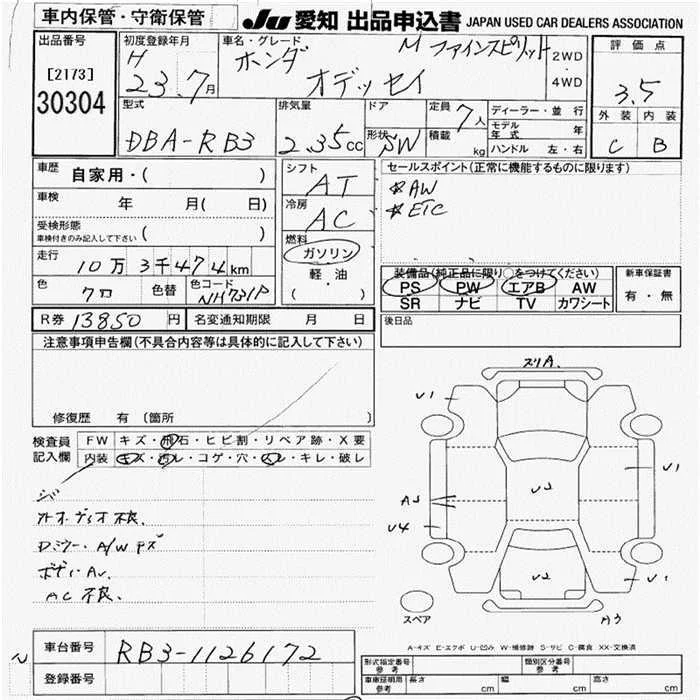 車内保管・守衛保管 JU 愛知 出品申込書 JAPAN USED CAR DEALERS ASSOCIATION
出品番号 初度登録年月 車名・グレード 評価点
[2173] H 23.7月 ホンダ オデッセイ M ファインスピリット 2WD・4WD 3.5
30304 外装 内装
型式 排気量 ドア 定員 7人 ディーラー・並行 C B
DBA-RB3 2.35cc 形状 SW 積載 kg モデル年式 年
ハンドル 左・右
車歴 自家用・( ) シフト AT セールスポイント(正常に機能するものに限ります)
車検 年 月( 日) 冷房 AC *AW
受検形態 車検付きのみ記入して下さい ( ) 燃料 *ETC
走行 10万3千474km ガソリン 装備品(純正品に限り○をつけてください) 新車保証書
色 クロ 色替 色コード NH731P 軽・油 PS PW エアB AW 有・無
( ) SR ナビ TV カワシート
R券 13850円 名変通知期限 月 日 後日品
注意事項申告欄(不具合内容等は具体的に記入して下さい)
修復歴 有 〔箇所
検査員記入欄 FW キズ・飛石・ヒビ割・リペア跡・X要
内装 キズ・汚レ・コゲ・穴・ムレ・キレ・破レ
スリA.
U1
U1
U2
A3
U4
U2
U1
A3
スペア
オーディオ不良.
Dミラー・A/Wキズ
ボディAU.
AC不良.
A-キズ E-エクボ U-凹み W-補修跡 S-サビ C-腐食 XX-交換済
車台番号 RB3-1126172
登録番号
形式指定番号 参考 類別区分番号 参考
車庫証明用 参考 長さ cm 幅 cm 高さ cm